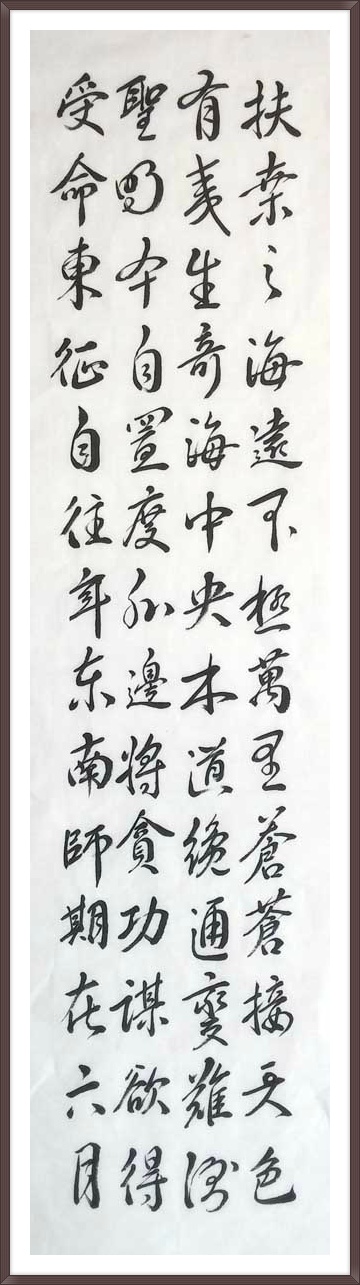 扶桑之海遠不極萬里蒼蒼接天色
有夷生奇海中央木道纔通變難測
聖明本自置度外邊將貪功謀欲得
受命東征自往年东南師期在六月